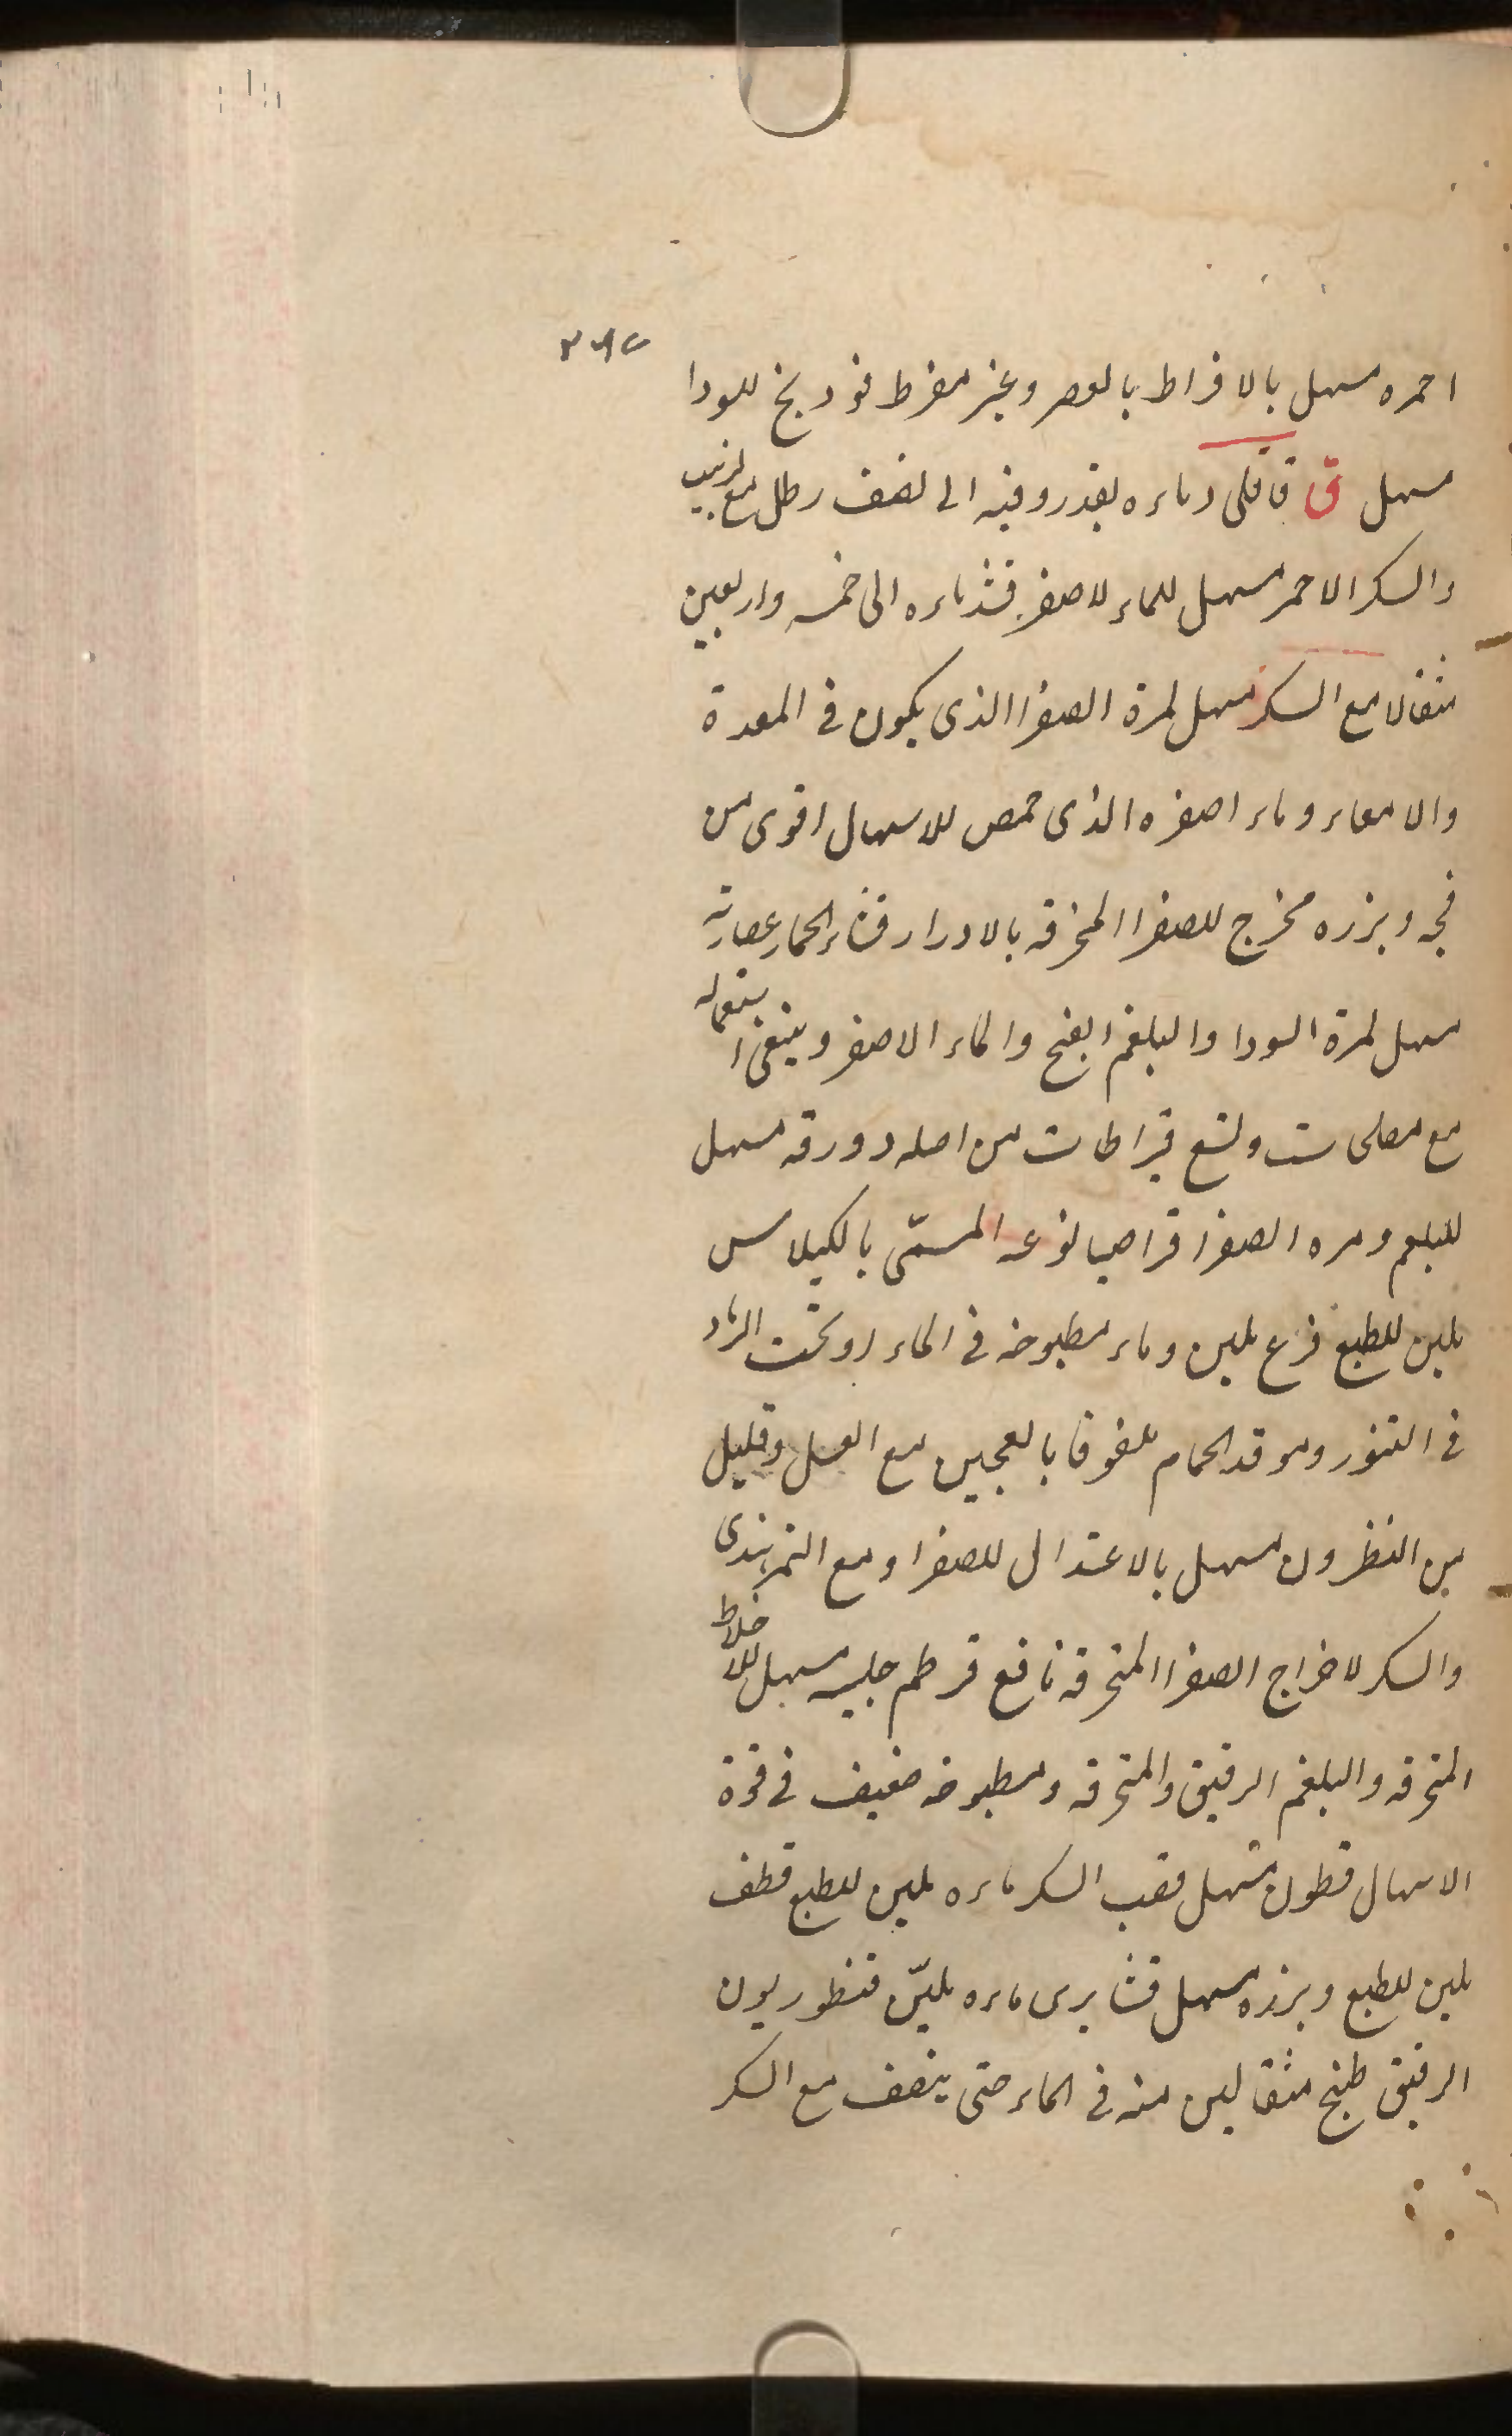 احمره مسهل بالافراط بالعصر وغير مفرط فودنج للسودا
مسهل ق قاقلى وماءه بقدر وقيه الى نصف رطل مع لزبيب
والسكر الاحمر مسهل للماء لاصفر قثد ماءه الى خمسه واربعين
مثقالا مع السكر مسهل لمرة الصفرا الذى يكون فى المعدة
والامعاء وماء اصفره الذى حمص للاسهال اقوى من
فجه وبزره مخرج للصفرا المحترقه بالادرار قثاء الحمار عصارته
مسهل لمرة السودا والبلغم الفج والماء الاصفر وينبغى استعماله
مع مصلحات وتسع قيراطات من اصله وورقه مسهل
للبلغم ومره الصفرا قراصيا نوعه المسمّى بالكيلاس
ملين للطبع قرع ملين وماء مطبوخه فى الماء او تحت الرماد
فى التنور وموقد الحمام ملفوفا بالعجين مع العسل وقليل
من النطرون مسهل بالاعتدال للصفرا ومع التمرهندى
والسكر لاخراج الصفرا المحترقه نافع قرطم حليبه مسهل للاخلاط
المحترقه والبلغم الرقيق والمحترقه ومطبوخه ضعيف فى قوة
الاسهال قطون مسهل قصب السكر ماءه ملين للطبع قطف
ملين للطبع وبزره مسهل قثا برى ماءه مليّن قنطوريون
الرقيق طبخ مثقالين منه فى الماء حتى ينصف مع السكر